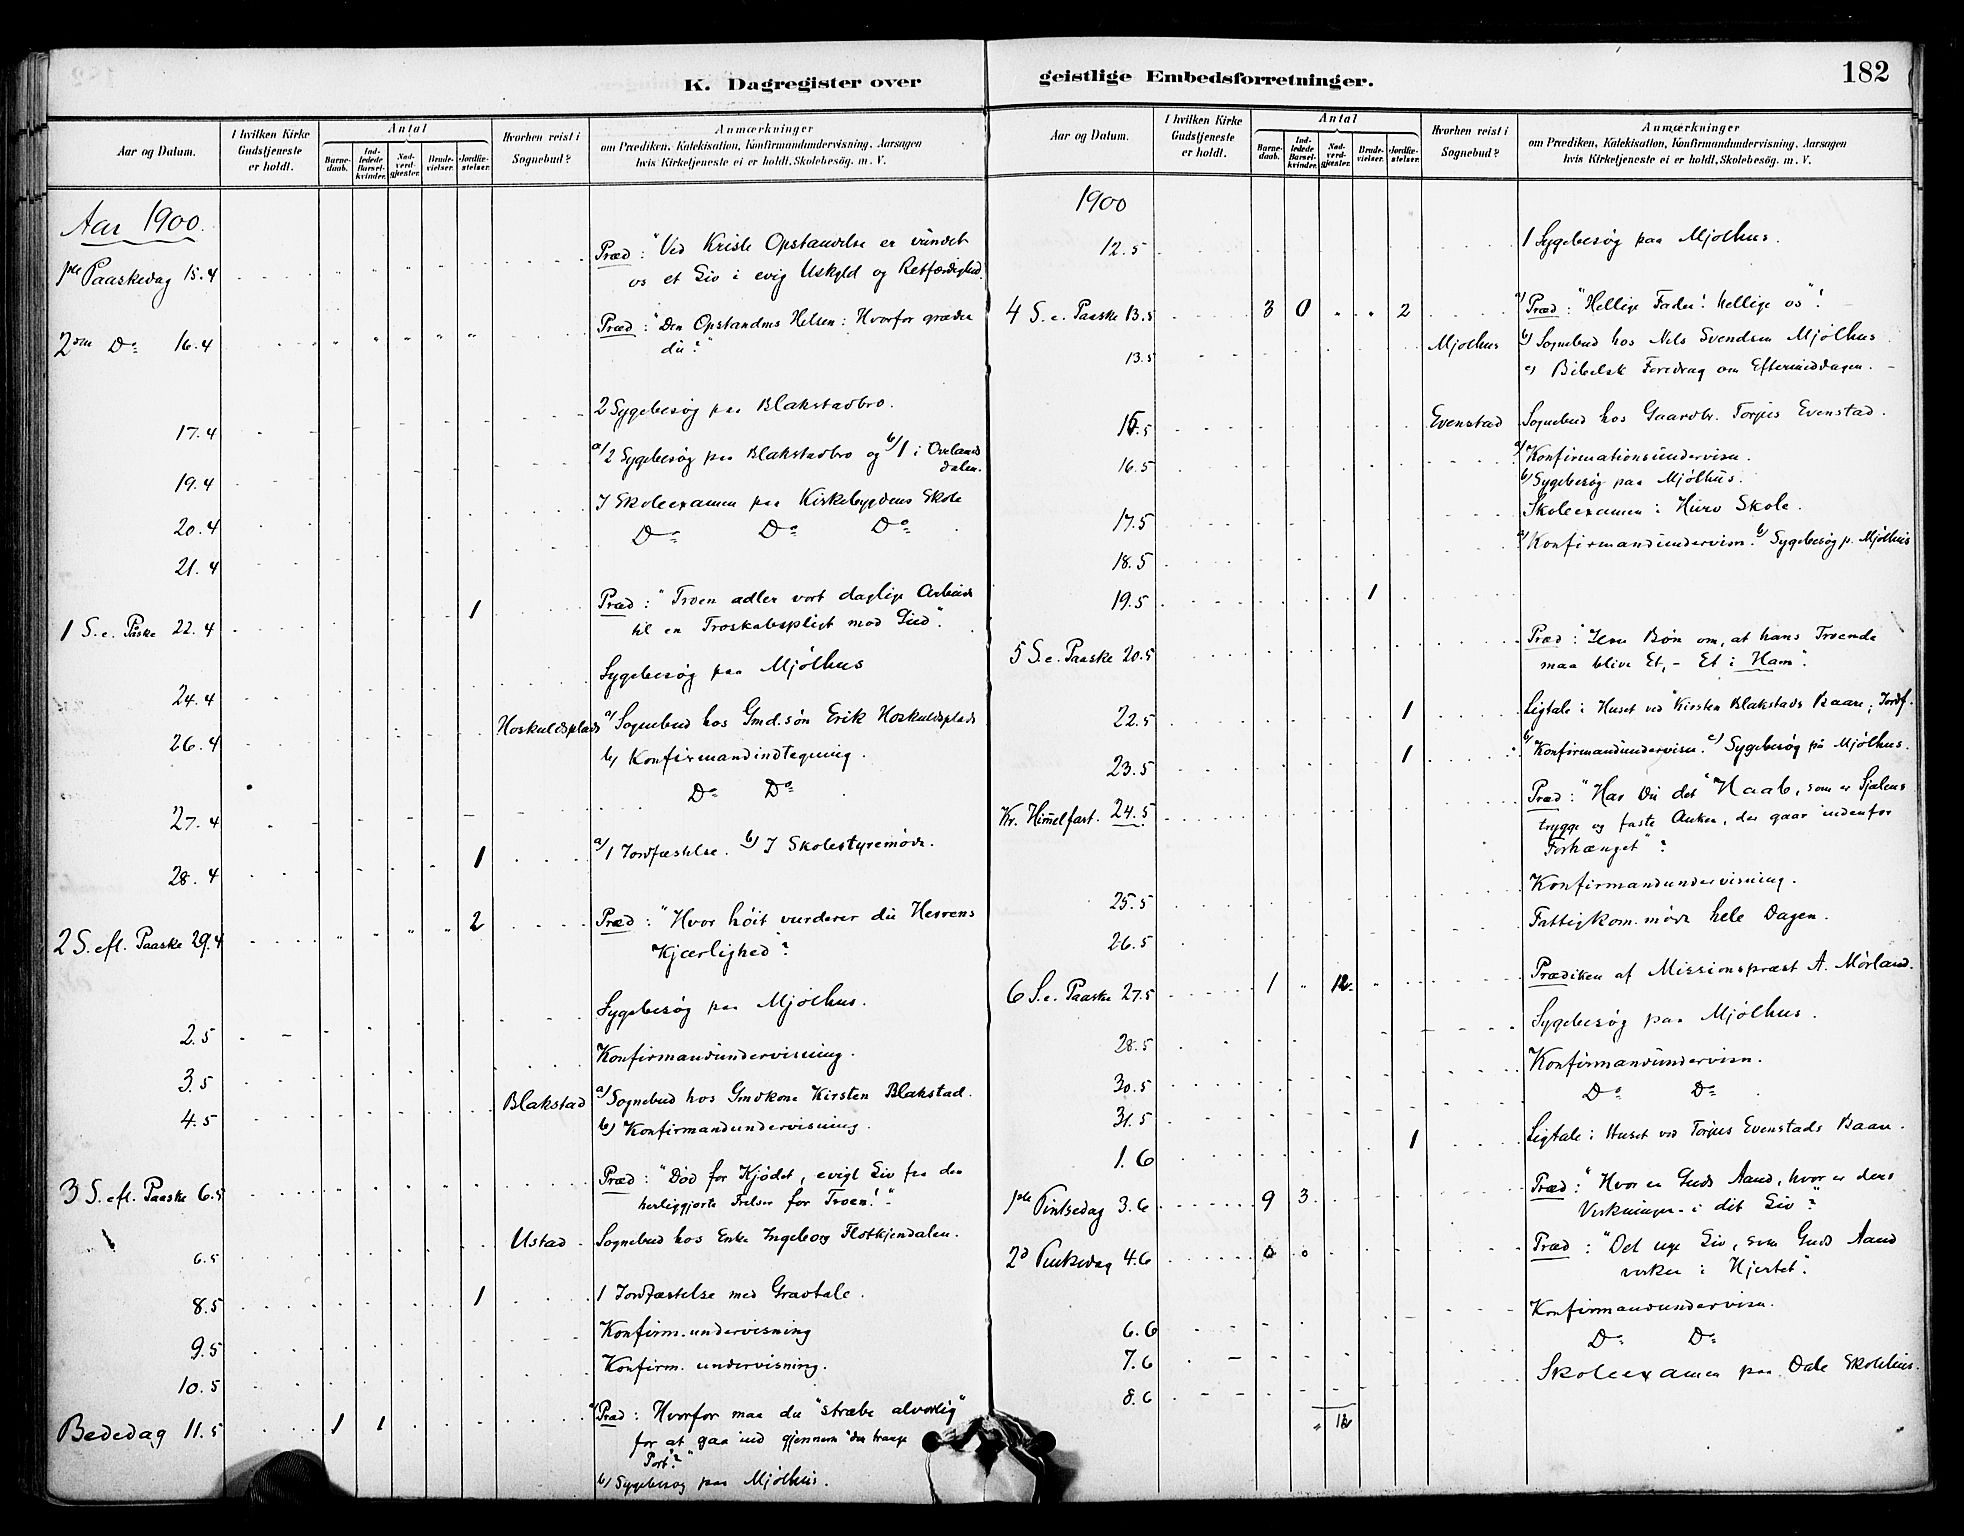 K. Dagregister over geistlige Embedsforretninger.
182
Aar og Datum.
I hvilken Kirke Gudstjeneste er holdt.
Antal
Barne-daab.
Ind-ledede Barsel-kvinder.
Nad-verd-gjester.
Brude-vielser.
Jordfæ-stelser.
Hvorhen reist i Sognebud?
Anmærkninger
om Prædiken, Katekisation, Konfirmandundervisning, Aarsagen
hvis Kirketjeneste ei er holdt, Skolebesög. m. V.
Aar 1900.
1ste Paaskedag 15.4 Præd: "Ved Kristi Opstandelse er vundet
os et Liv i evig Uskyld og Retfærdighed.
2den Do 16.4 Præd: "Den Opstandnes Hilsen: Hvorfor græder
du?"
17.4 2 Sygebesøg paa Blakstadbro.
19.4 a/ 2 Sygebesøg paa Blakstadbro og b/ 1 i Ovelands
dalen.
20.4 I Skoleexamen paa Kirkebygdens Skole
21.4 Do Do Do
1 S. e. Påske 22.4 1 Præd: "Troen adler vort daglige Arbeide
til en Troskabspligt mod Gud".
24.4 Sygebesøg paa Mjølhus
26.4 Hoskuldsplads a/ Sognebud hos Gmd.søn Erik Hoskuldsplads
b/ Konfirmandindtegning.
27.4 Do Do
28.4 1 a/ 1 Jordfæstelse. b/ I Skolestyremøde.
2 S. eft. Paaske 29.4 2 Præd: "Hvor høit vurderer du Herrens
Kjærlighed"?
2.5 Sygebesøg paa Mjølhus.
3.5 Konfirmandundervisning.
4.5 Blakstad a/ Sognebud hos Gmdkone Kirsten Blakstad.
b/ Konfirmandundervisning.
3 S. eft. Paaske 6.5 Præd: "Død for Kjødet, evigt Liv fra den
herliggjorte Frelser for Troen!"
6.5 Ustad Sognebud hos Enke Ingeborg Flotkjendalen.
8.5 1 1 Jordfæstelse med Gravtale.
9.5 Konfirm.undervisning
10.5 Konfirm. undervisning.
Bededag 11.5 1 1 a/ Præd: Hvorfor maa du "stræbe alvorlig"
for at gaa ind gjennem "den trange
Port?"
b/ Sygebesøg paa Mjølhus.
Aar og Datum.
I hvilken Kirke Gudstjeneste er holdt.
Antal
Barne-daab.
Ind-ledede Barsel-kvinder.
Nad-verd-gjester.
Brude-vielser.
Jordfæ-stelser.
Hvorhen reist i Sognebud?
Anmærkninger
om Prædiken, Katekisation, Konfirmandundervisning, Aarsagen
hvis Kirketjeneste ei er holdt, Skolebesög. m. V.
1900
12.5 1 Sygebesøg paa Mjølhus.
4 S. e. Paaske 13.5 3 0 2 a/ Præd: "Hellige Fader! hellige os"!
13.5 Mjølhus b/ Sognebud hos Nils Svendsen Mjølhus
c/ Bibelsk Foredrag om Eftermiddagen.
15.5 Evenstad Sognebud hos Gaardbr. Torjus Evenstad.
16.5 a/ Konfirmationsundervisn.
b/ Sygebesøg paa Mjølhus.
17.5 Skoleexamen i Hurv Skole.
18.5 a/ Konfirmandundervisn. b/ Sygebesøg p. Mjølhus
19.5 1
5 S. e. Paaske 20.5 Præd: "Jesu Bøn om, at hans Troende
maa blive Et, - Et i Ham".
22.5 1 Ligtale i Huset ved Kirsten Blakstads Baare; Jordf.
23.5 1 b/ Konfirmandundervisn. c/ Sygebesøg på Mjølhus.
Kr. Himmelfart. 24.5 Præd: "Har Du det "Haab, som er Sjælens
trygge og faste Anker, der gaar indenfor
Forhænget"?
25.5 Konfirmandundervisning.
26.5 Fattigkom.møde hele Dagen.
6 S. e. Paaske 27.5 1 12. Prædiken af Missionsprest A. Mørland.
28.5 Sygebesøg paa Mjølhus.
30.5 Konfirmandundervisn.
31.5 Do Do
1.6 1 Ligtale i Huset ved Torjus Evenstads Baare.
1ste Pintsedag 3.6 9 3 Præd: "Hvor er Guds Aand, hvor er dens
Virkninger i dit Liv"?
2d Pintsedag 4.6 0 0 Præd: "Det nye Liv, som Guds Aand
virker i Hjertet".
6.6 Konfirmandundervisn.
7.6 Do Do
8.6 Skoleexamen paa Dale Skolehus.
12